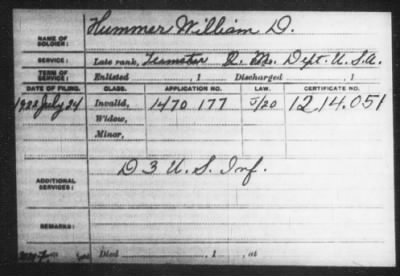 NAME OF SOLDIER: Hummer William D.
SERVICE: Late rank, Teamster Q. Mr. Dept. U.S.A.
TERM OF SERVICE: Enlisted , 1 Discharged , 1
DATE OF FILING. CLASS. APPLICATION NO. LAW. CERTIFICATE NO.
1922 July 24 Invalid, 1470 177 5/20 1214.051
Widow,
Minor,
ADDITIONAL SERVICES: D 3 U.S. Inf.
REMARKS:
Died , 1 , at